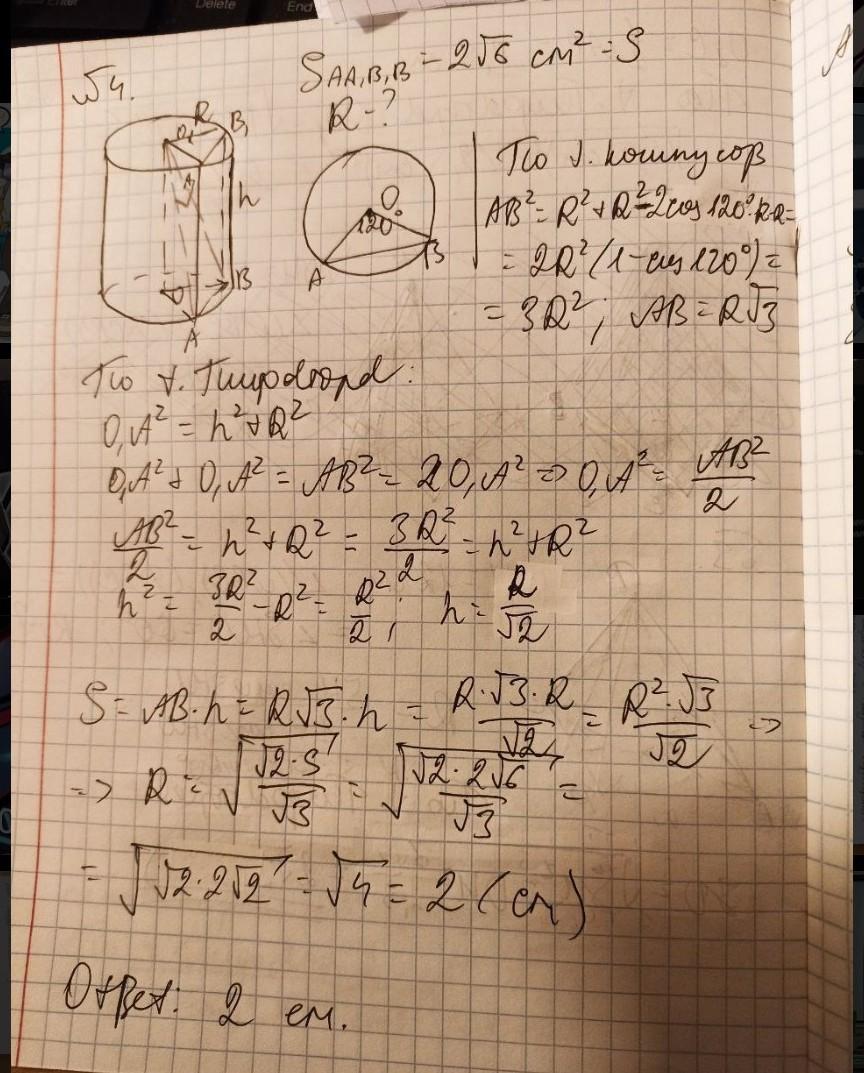 Delete
End
№4.
S_{AA₁B₁B} = 2√6 cm² = S
R - ?
O₁ R B₁
A₁
h
O B
A
O
120°
A B
По т. косинусов
AB² = R² + R² - 2cos 120° · R·R =
= 2R² (1 - cos 120°) =
= 3R² ; AB = R√3
По т. Пифагора:
O₁A² = h² + R²
O₁A² + O₁A² = AB² = 2O₁A² => O₁A² = AB²/2
AB²/2 = h² + R² = 3R²/2 = h² + R²
h² = 3R²/2 - R² = R²/2 ; h = R/√2
S = AB · h = R√3 · h = R·√3·R/√2 = R²·√3/√2 =>
=> R = √(√2·S/√3) = √(√2·2√6/√3) =
= √(√2·2√2) = √4 = 2 (см)
Ответ: 2 см.